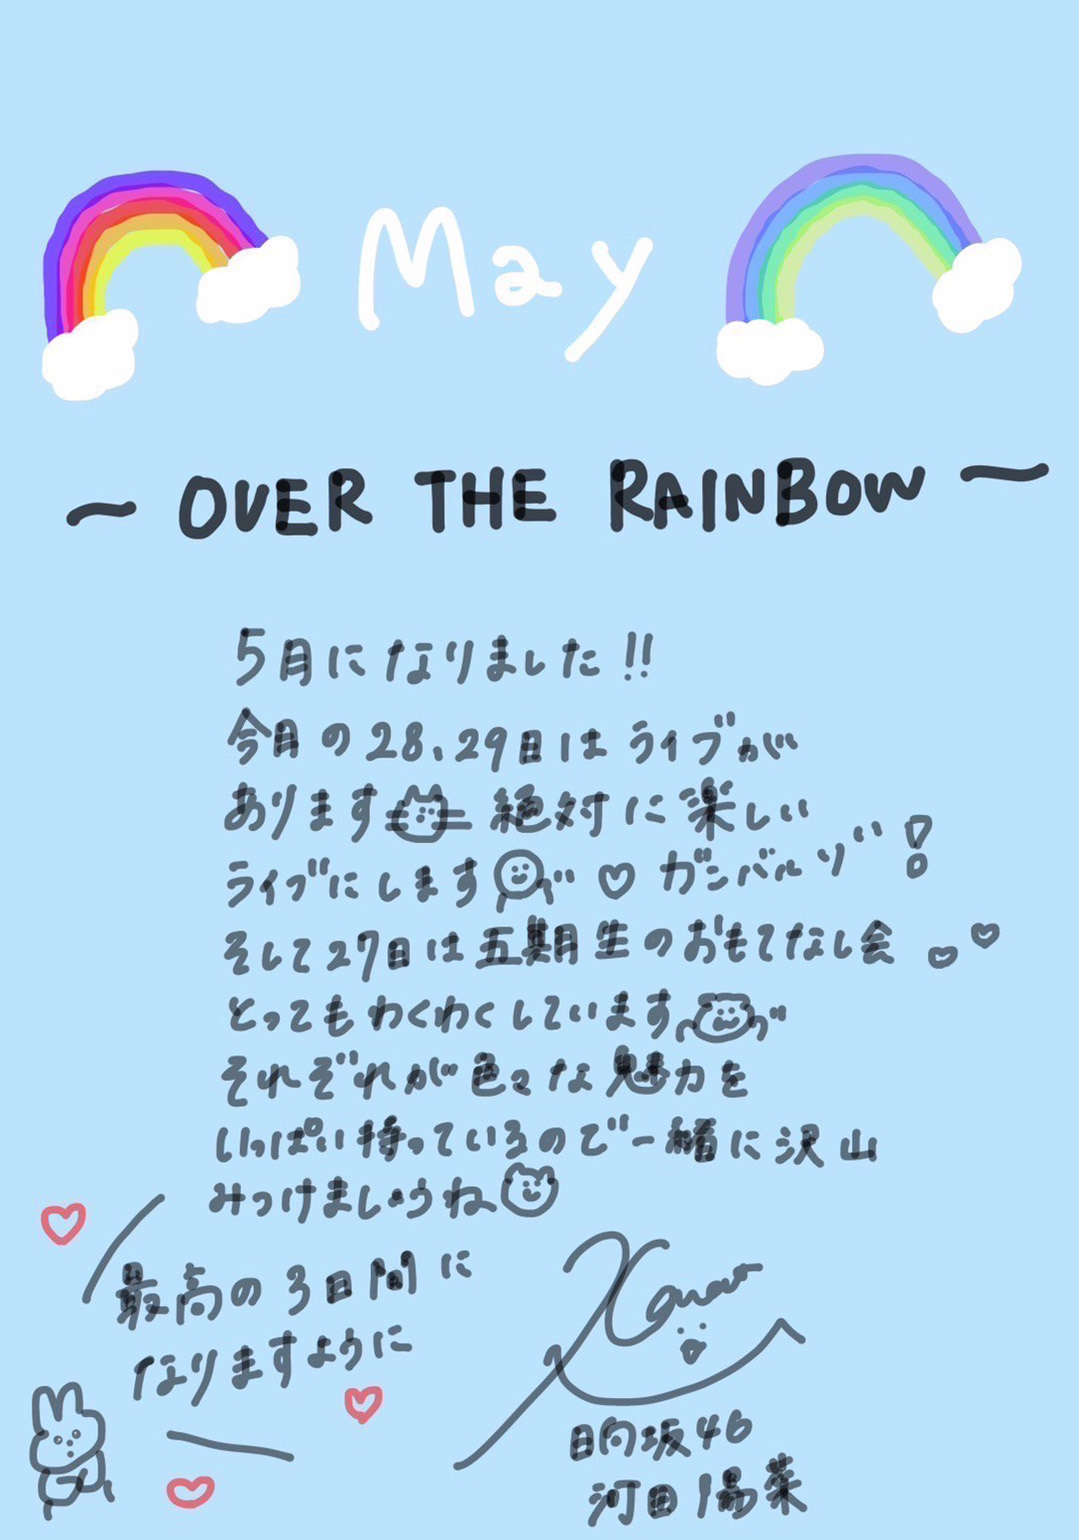 May
〜 OVER THE RAINBOW 〜
5月になりました!!
今月の28、29日はライブが
あります 絶対に楽しい
ライブにします ♡ ガンバルゾ!
そして27日は五期生のおもてなし会 ♡♡
とってもわくわくしています
それぞれが色々な魅力を
いっぱい持っているので一緒に沢山
みつけましょうね
最高の3日間に
なりますように
Kanau
日向坂46
河田陽菜